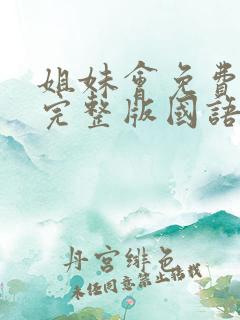 姐妹會免費
完整版國語
丹宮緋色
未经同意禁止搭载